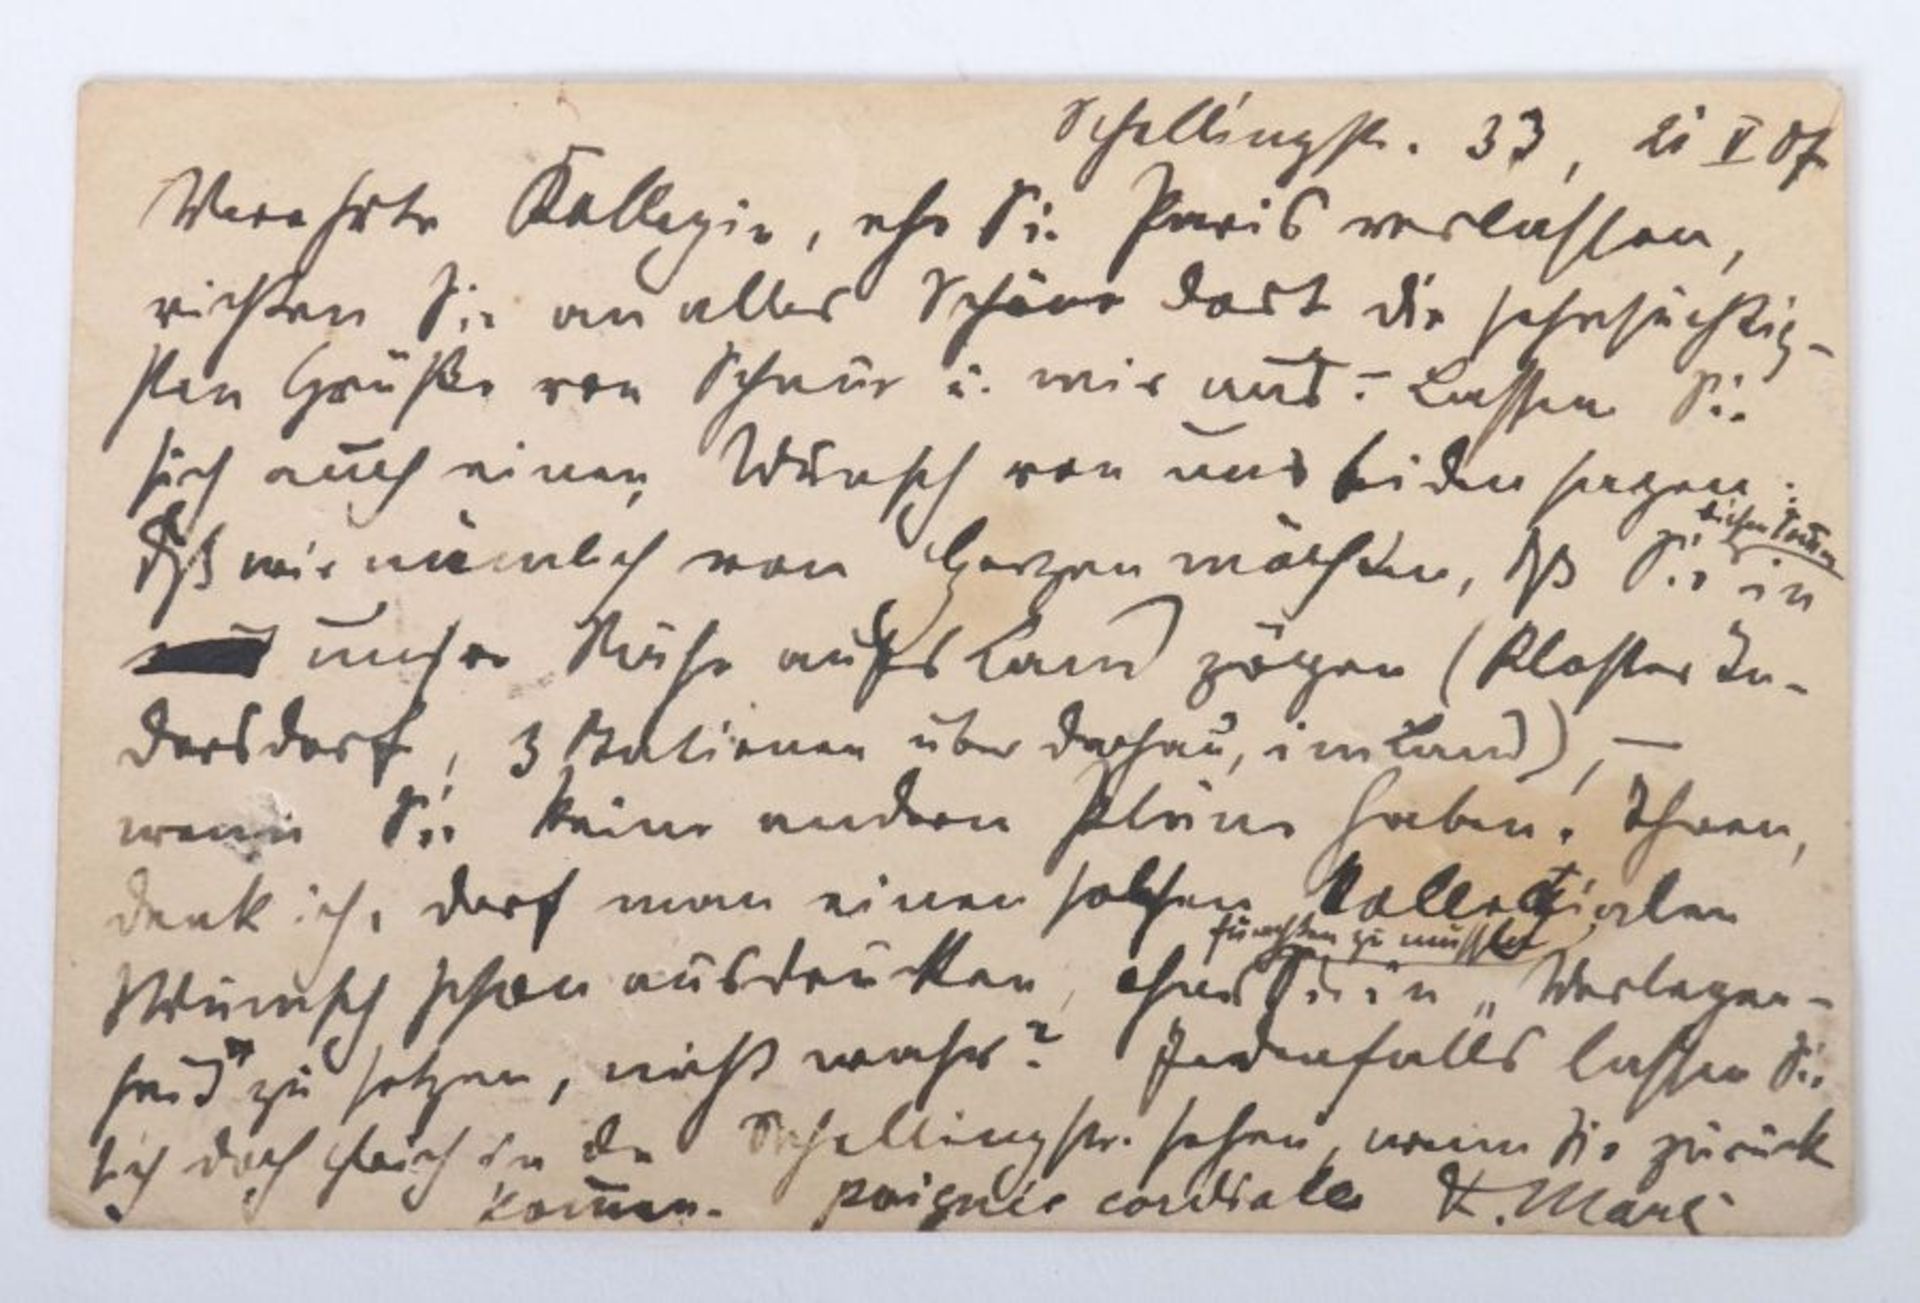 Schellingstr. 33, 21 V 07
Verehrte Kollegin, ehe Sie Paris verlassen,
richten Sie an alles Schöne dort die sehnsüchtig-
sten Grüße von Schnür u. mir aus. – Lassen Sie
sich auch einen Wunsch von uns beiden sagen:
daß wir nämlich von Herzen möchten, daß Sie in
unsre Nähe aufs Land zögen (Kloster In-
dersdorf, 3 Stationen über Dachau, im Land), –
wenn Sie keine andern Pläne haben. Ihnen,
denk ich, darf man einen solchen kollegialen
fürchten zu müssen
Wunsch schon ausdrücken, ohne Sie in „Verlegen-
heit“ zu setzen, nicht wahr? Jedenfalls lassen Sie
sich doch gleich in der Schellingstr. sehen, wenn Sie zurück
kommen. poignée cordiale F. Marc